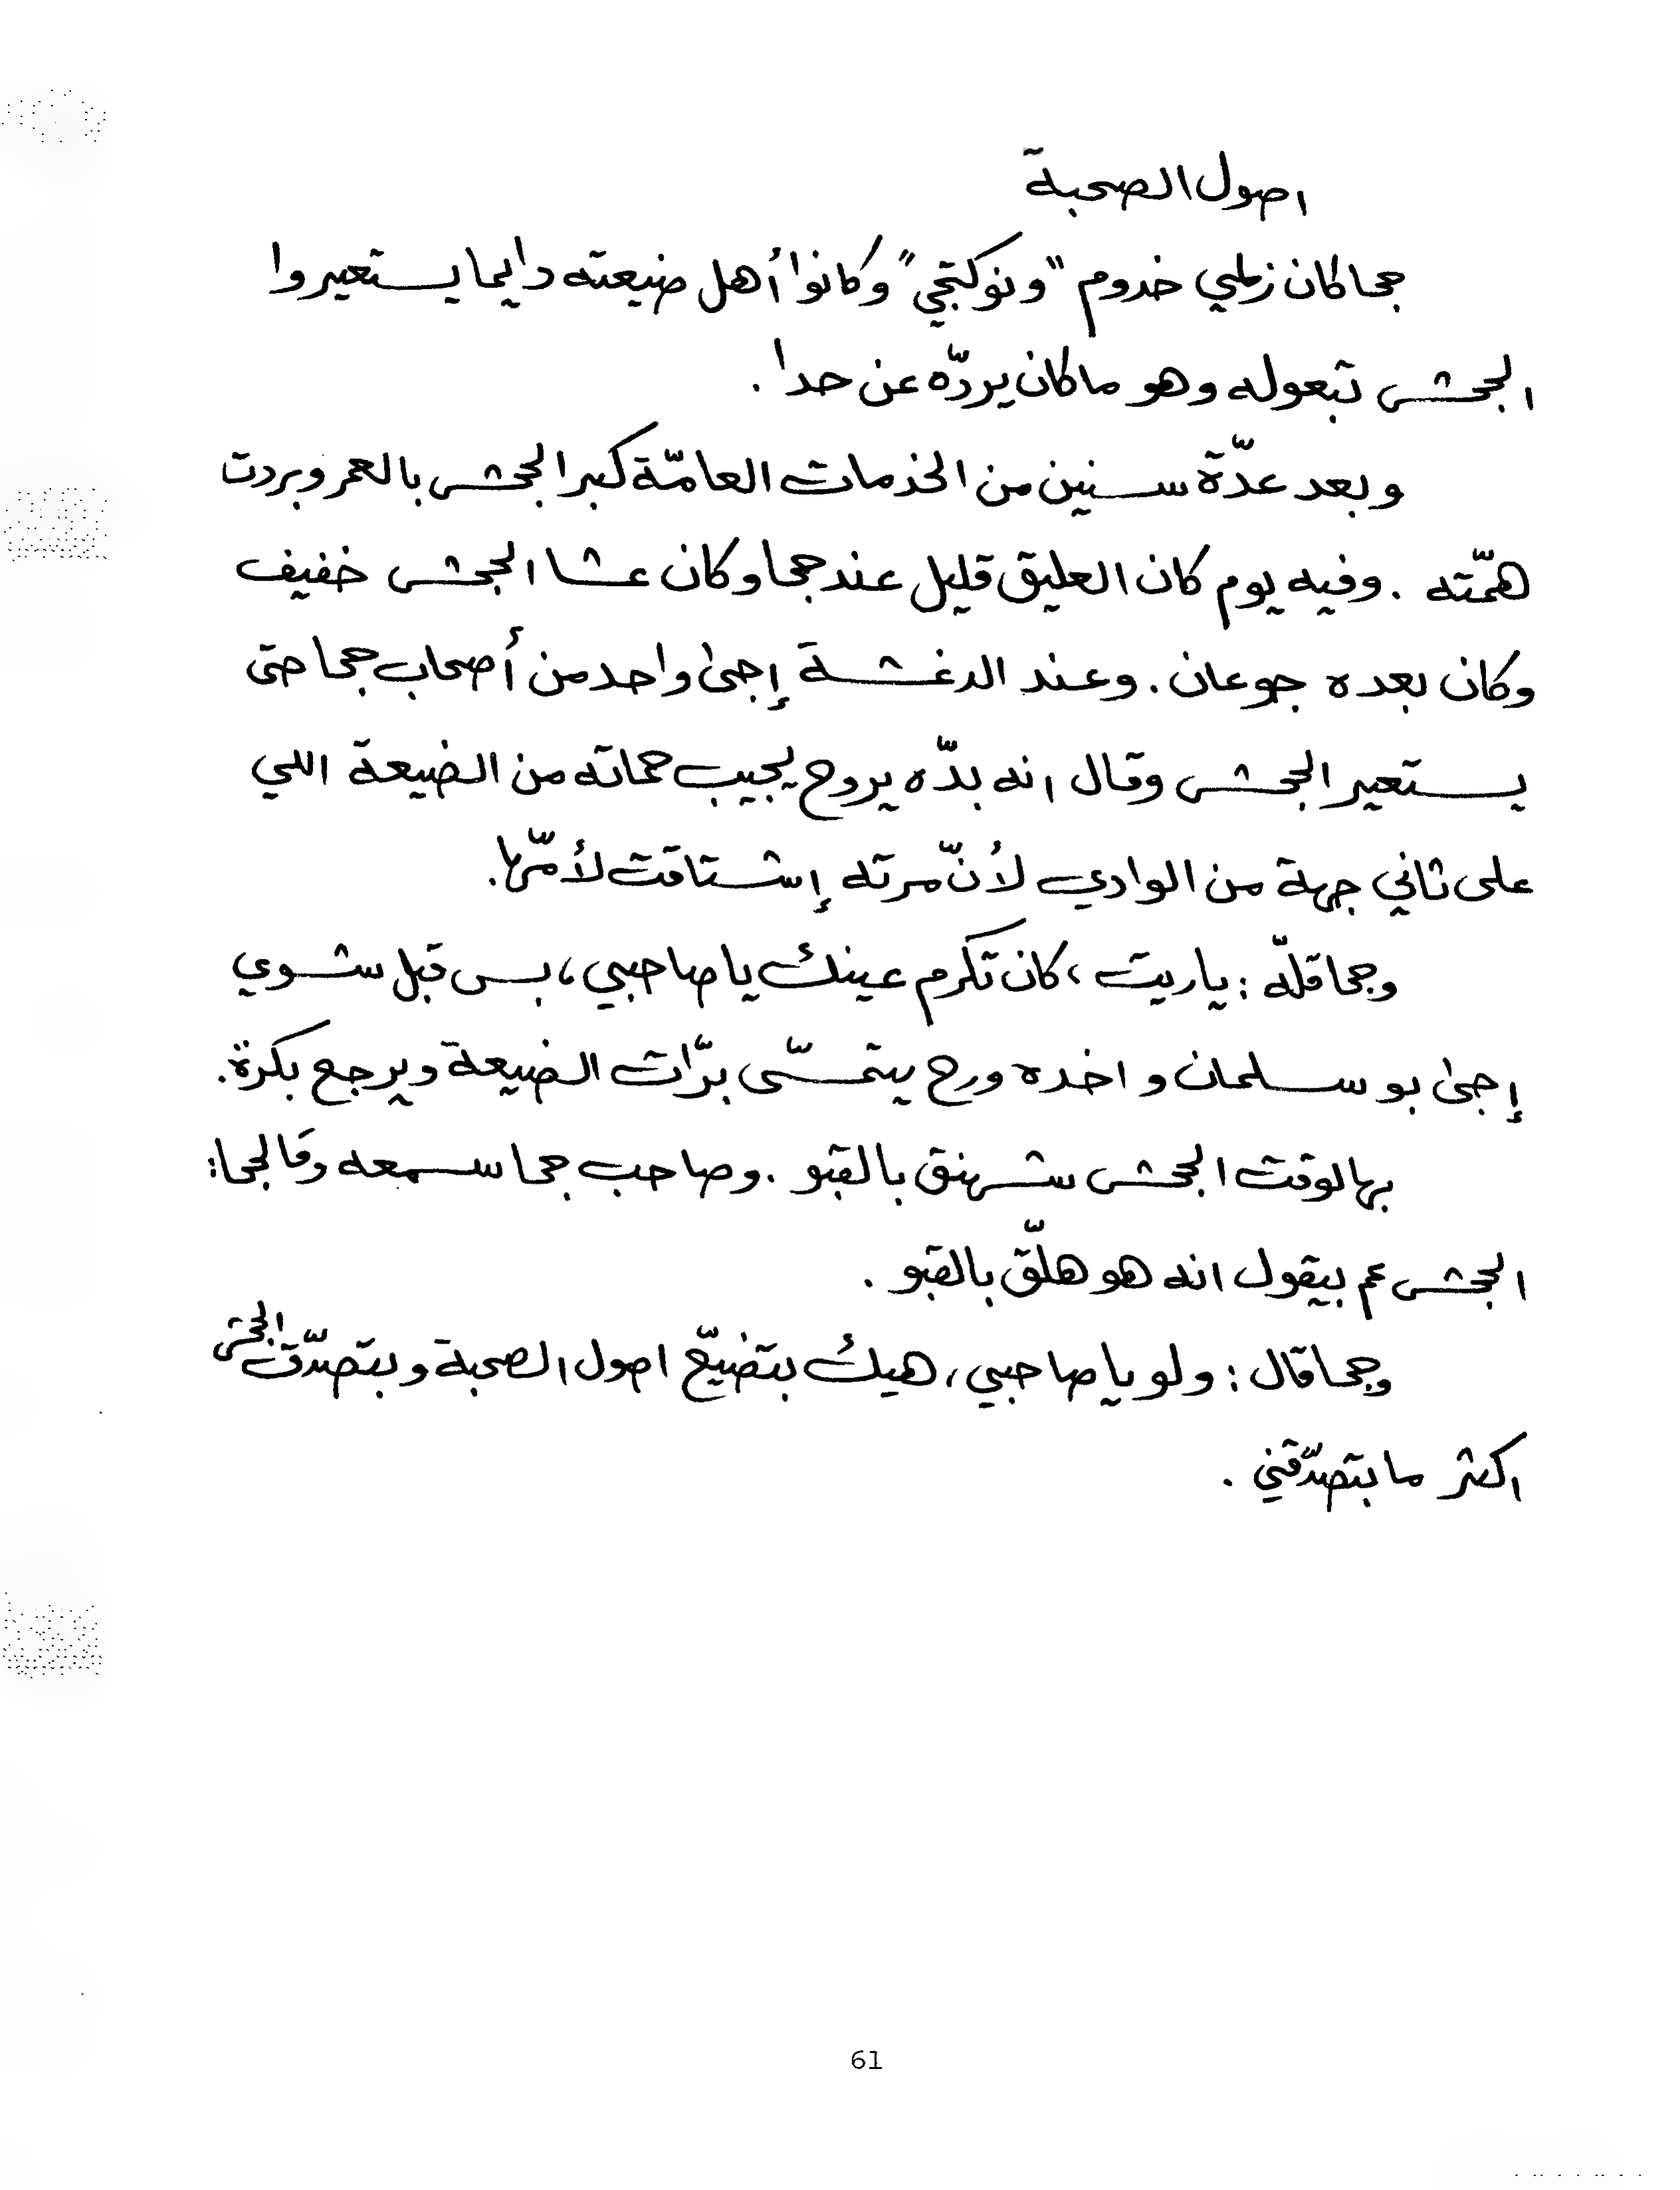 اصول الصحبة
جحا كان زلمي خدوم "ونوكتجي" وكانوا أهل ضيعته دايما يستعيروا
الجحش تبعوله وهو ما كان يردّه عن حدا .
وبعد عدّة سنين من الخدمات العامّة كبر الجحش بالعمر وبردت
همّته . وفيه يوم كان العليق قليل عند جحا وكان عشا الجحش خفيف
وكان بعده جوعان . وعند الدغشة إجى واحد من أصحاب جحا حتى
يستعير الجحش وقال انه بدّه يروح يجيب حماته من الضيعة اللي
على ثاني جهة من الوادي لأنّ مرته إشتاقت لأمّها.
وجحا قلّه : ياريت ، كان تكرم عينك يا صاحبي ، بس قبل شوي
إجى بو سلمان واخده ورح يتمسّى برّات الضيعة ويرجع بكرة .
بهالوقت الجحش شهنق بالقبو . وصاحب جحا سمعه وقالجحا :
الجحش عم بيقول انه هو هلّق بالقبو .
وجحا قال : ولو يا صاحبي ، هيك بتضيّع اصول الصحبة وبتصدّق الجحش
اكثر ما بتصدّقني .
61